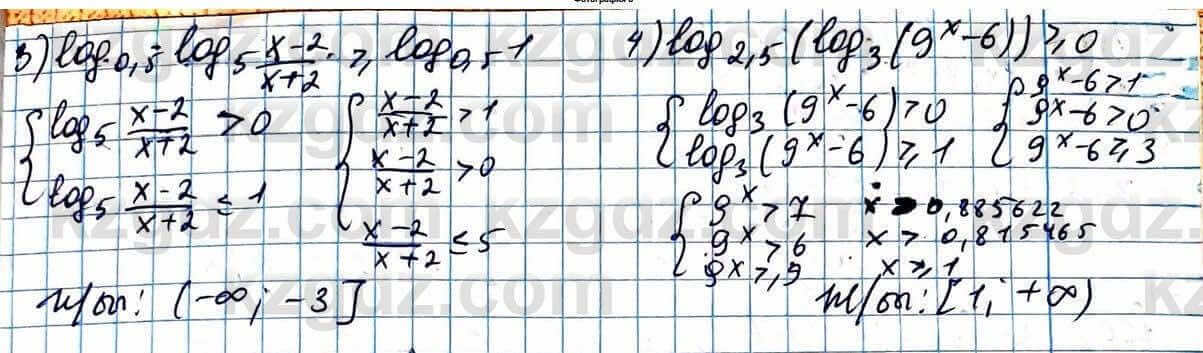 3) log 0,5 log₅ (x-2)/(x+2) ≥ log 0,5 1
{ log₅ (x-2)/(x+2) > 0
log₅ (x-2)/(x+2) ≤ 1
{ (x-2)/(x+2) > 1
(x-2)/(x+2) > 0
(x-2)/(x+2) ≤ 5
ж/бы: (-∞; -3]
4) log 2,5 (log₃ (9ˣ-6)) ≥ 0
{ log₃ (9ˣ-6) > 0
log₃ (9ˣ-6) ≥ 1
{ 9ˣ-6 > 1
9ˣ-6 > 0
9ˣ-6 ≥ 3
{ 9ˣ > 7 x > 0,885622
9ˣ > 6 x > 0,815465
9ˣ ≥ 9 x ≥ 1
ж/бы: [1; +∞)
kzgdz.com